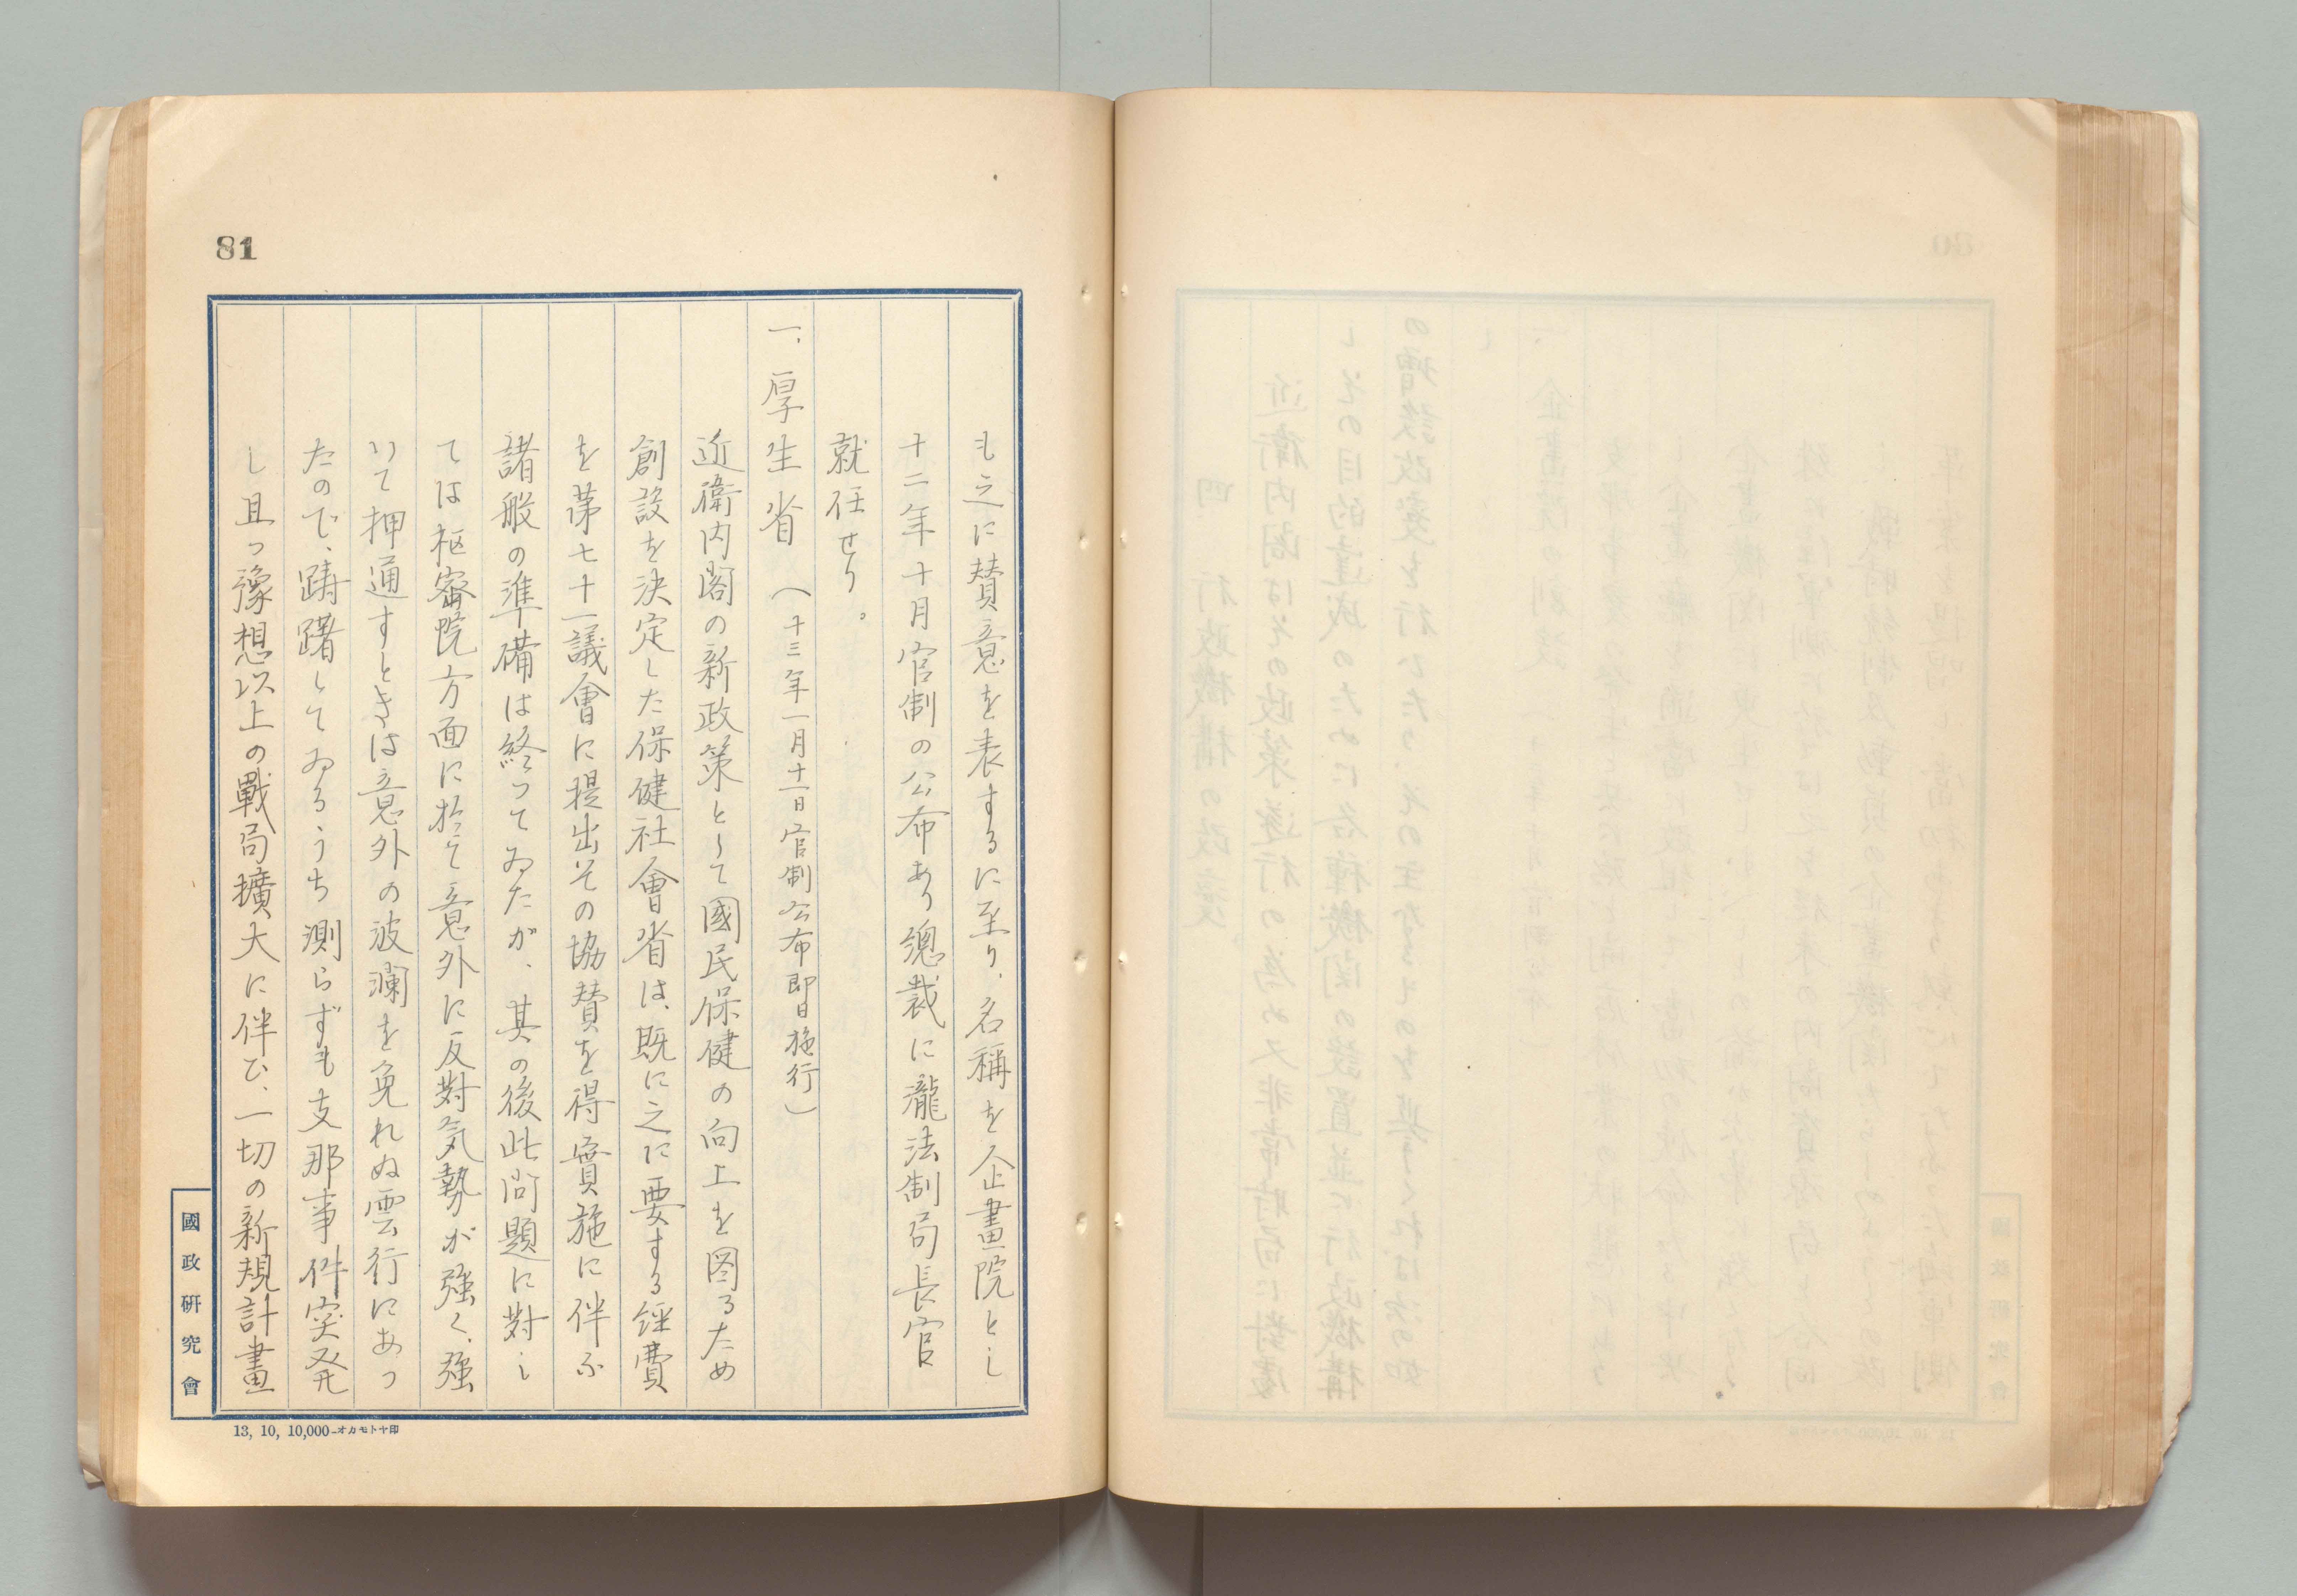 81
も之に賛意を表するに至り、名稱を企畫院とし
十二年十月官制の公布あり總裁に瀧法制局長官
就任せり。
一、厚生省 (十三年一月十一日官制公布即日施行)
近衛内閣の新政策として國民保健の向上を図るため
創設を决定した保健社會省は、既に之に要する経費
を第七十一議會に提出その協賛を得實施に伴ふ
諸般の準備は終ってゐたが、其の後此問題に対し
ては枢密院方面に於て意外に反對気勢が強く、強
いて押通すときは意外の波瀾を免れぬ雲行にあっ
たので、躊躇してゐるうち測らずも支那事件突発
し且つ豫想以上の戰局擴大に伴ひ、一切の新規計畫
國政研究會
13, 10, 10,000-オカモトヤ印